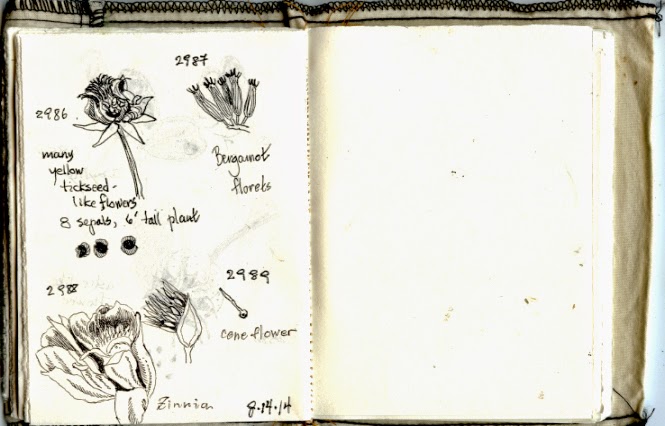 2987
2986
many
yellow
tickseed-
like flowers
8 sepals, 6' tall plant
Bergamot
florets
2988
2989
cone-flower
Zinnia
8.14.14